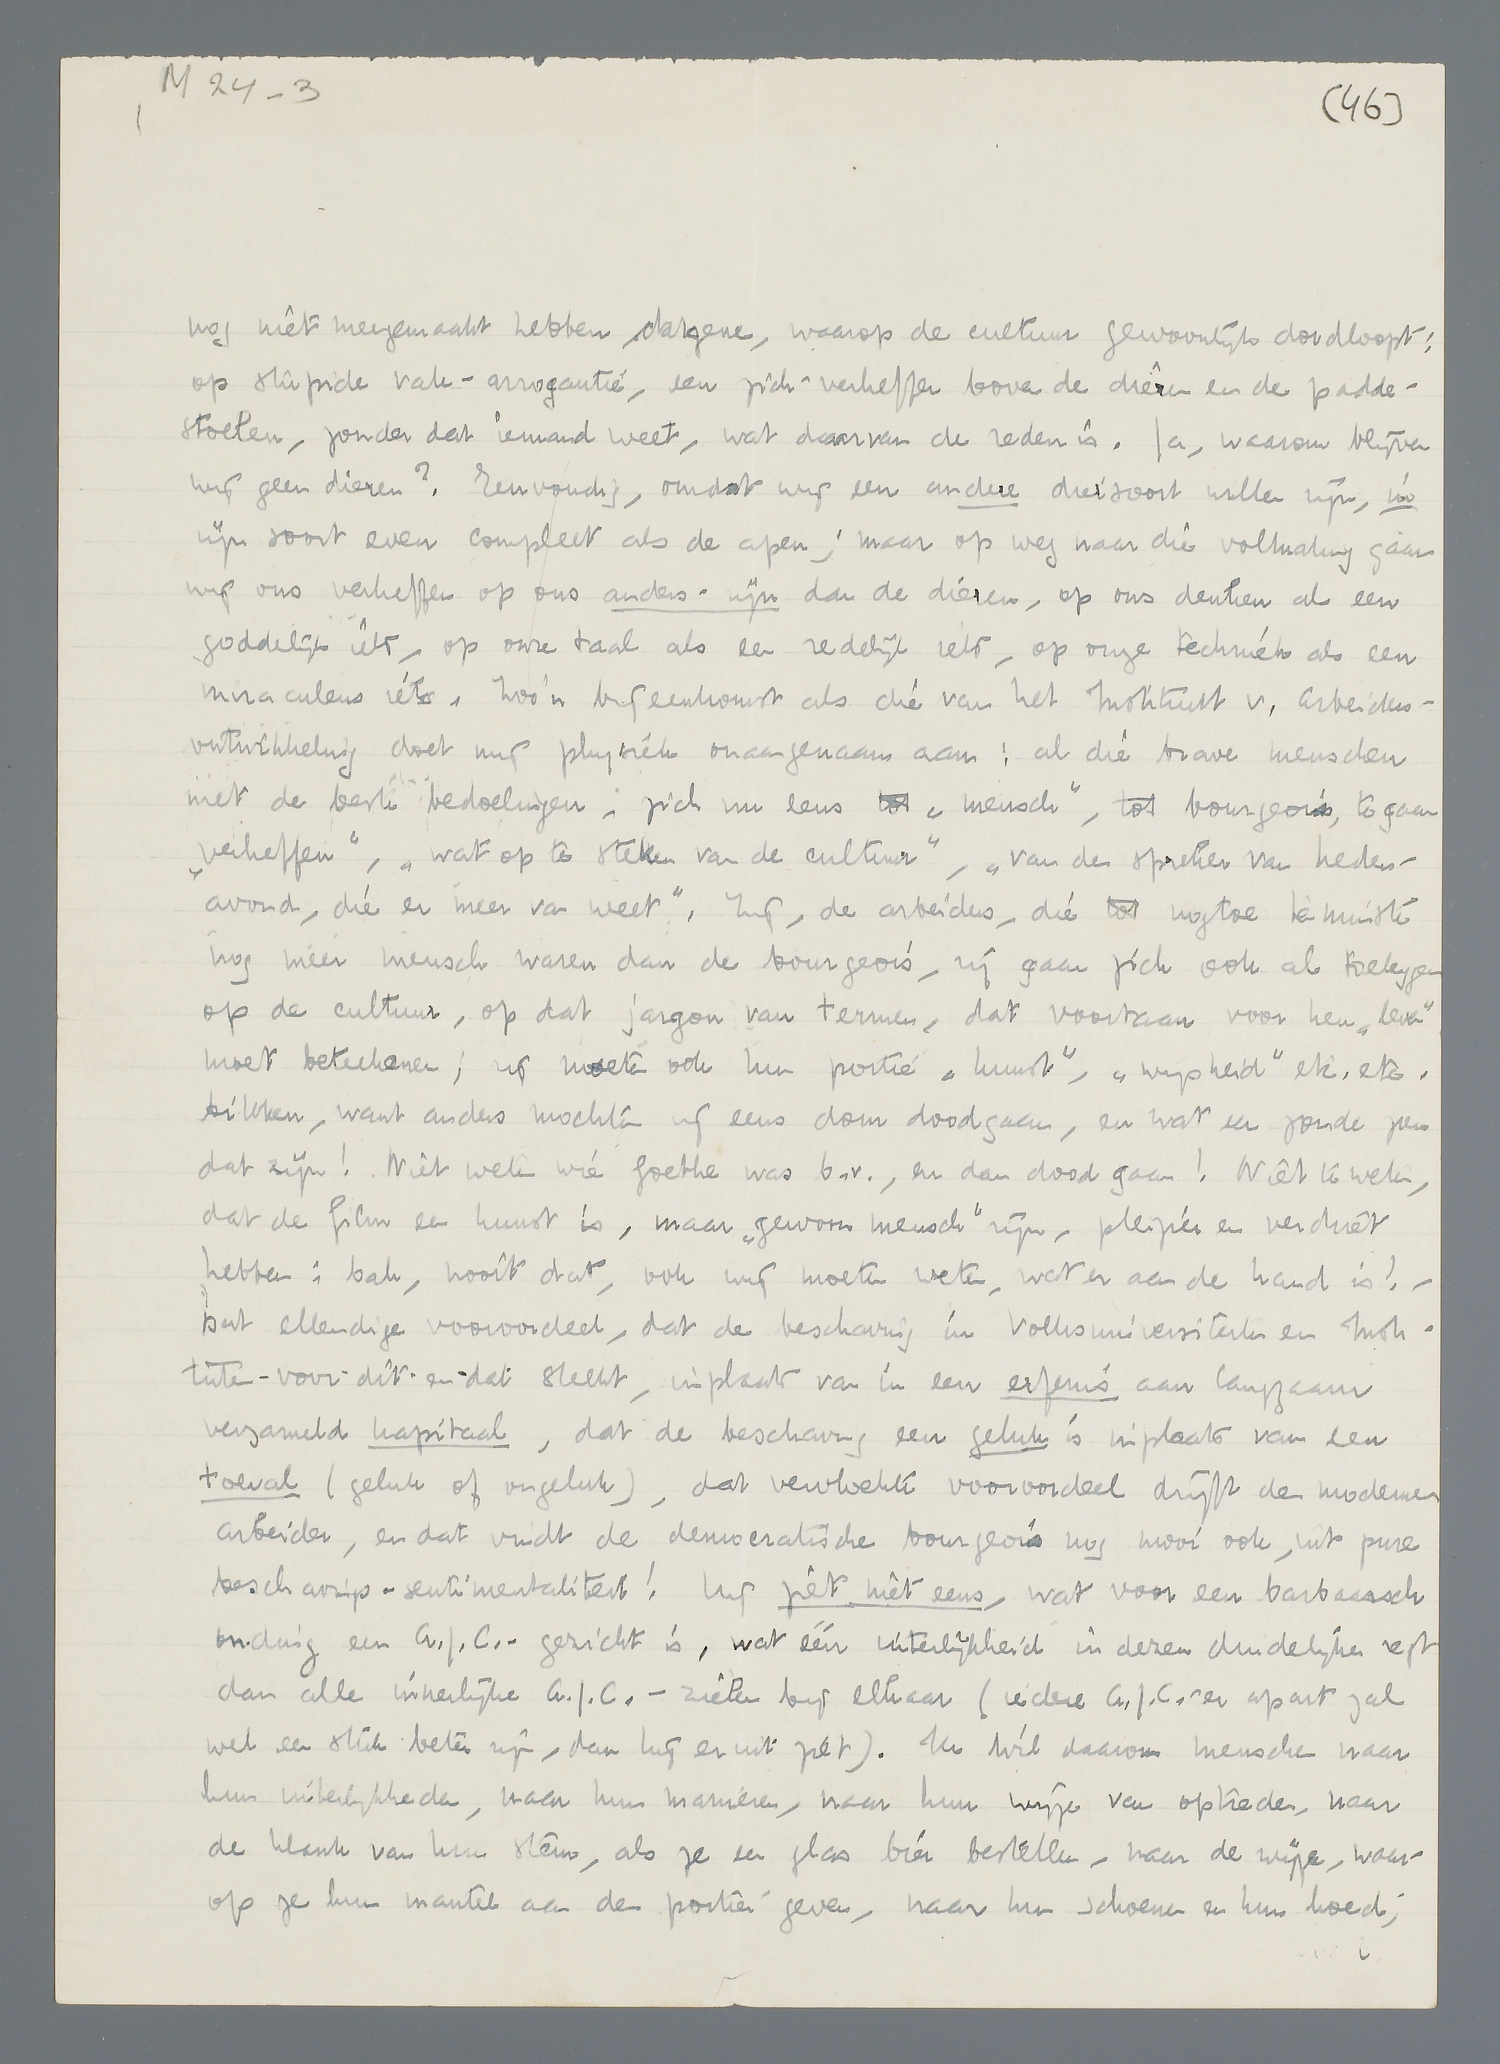 M 24-3
(46)
nog niet meegemaakt hebben datgene, waarop de cultuur gewoonlijk doodloopt:
op stupide vak-arrogantie, een zich-verheffen boven de dieren en de padde-
stoelen, zonder dat iemand weet, wat daarvan de reden is. Ja, waarom blijven
wij geen dieren? Eenvoudig, omdat wij een andere diersoort willen zijn, in
zijn soort even compleet als de apen; maar op weg naar die volmaking gaan
wij ons verheffen op ons anders-zijn dan de dieren, op ons denken als een
goddelijk iets, op onze taal als een redelijk iets, op onze techniek als een
miraculeus iets. Zoo'n bijeenkomst als die van het Instituut v. Arbeiders-
ontwikkeling doet mij physiek onaangenaam aan: al die brave menschen
met de beste bedoelingen; zich nu eens tot „mensch”, tot bourgeois, te gaan
„verheffen”, „wat op te steken van de cultuur”, „van den spreker van heden-
avond, die er meer van weet”. Zij, de arbeiders, die tot nogtoe tenminste
nog meer mensch waren dan de bourgeois, zij gaan zich ook al toeleggen
op de cultuur, op dat jargon van termen, dat voortaan voor hen „leven”
moet beteekenen; zij moeten ook hun portie „kunst”, „wijsheid” etc. etc.
bikken, want anders mochten zij eens dom doodgaan, en wat een zonde zou
dat zijn! Niet weten wie Goethe was b.v., en dan dood gaan! Niet te weten,
dat de film een kunst is, maar „gewoon mensch” zijn, pleizier en verdriet
hebben: bah, nooit dat, ook wij moeten weten, wat er aan de hand is! –
Dat ellendige vooroordeel, dat de beschaving in Volksuniversiteiten en Insti-
tuten-voor-dit-en-dat steekt, inplaats van in een erfenis aan langzaam
verzameld kapitaal, dat de beschaving een geluk is inplaats van een
toeval (geluk of ongeluk), dat vervloekte vooroordeel drijft den modernen
arbeider, en dat vindt de democratische bourgeois nog mooi ook, uit pure
beschavings-sentimentaliteit! Hij ziet niet eens, wat voor een barbaarsch
onding een A.J.C.-gezicht is, wat één uiterlijkheid in dezen duidelijker zegt
dan alle innerlijke A.J.C.-zielen bij elkaar (iedere A.J.C.-er apart zal
wel een stuk beter zijn, dan hij er uit ziet). Ik wil daarom menschen naar
hun uiterlijkheden, naar hun manieren, naar hun wijze van optreden, naar
de klank van hun stem, als ze een glas bier bestellen, naar de wijze, waar-
op ze hun mantel aan den portier geven, naar hun schoenen en hun hoed;